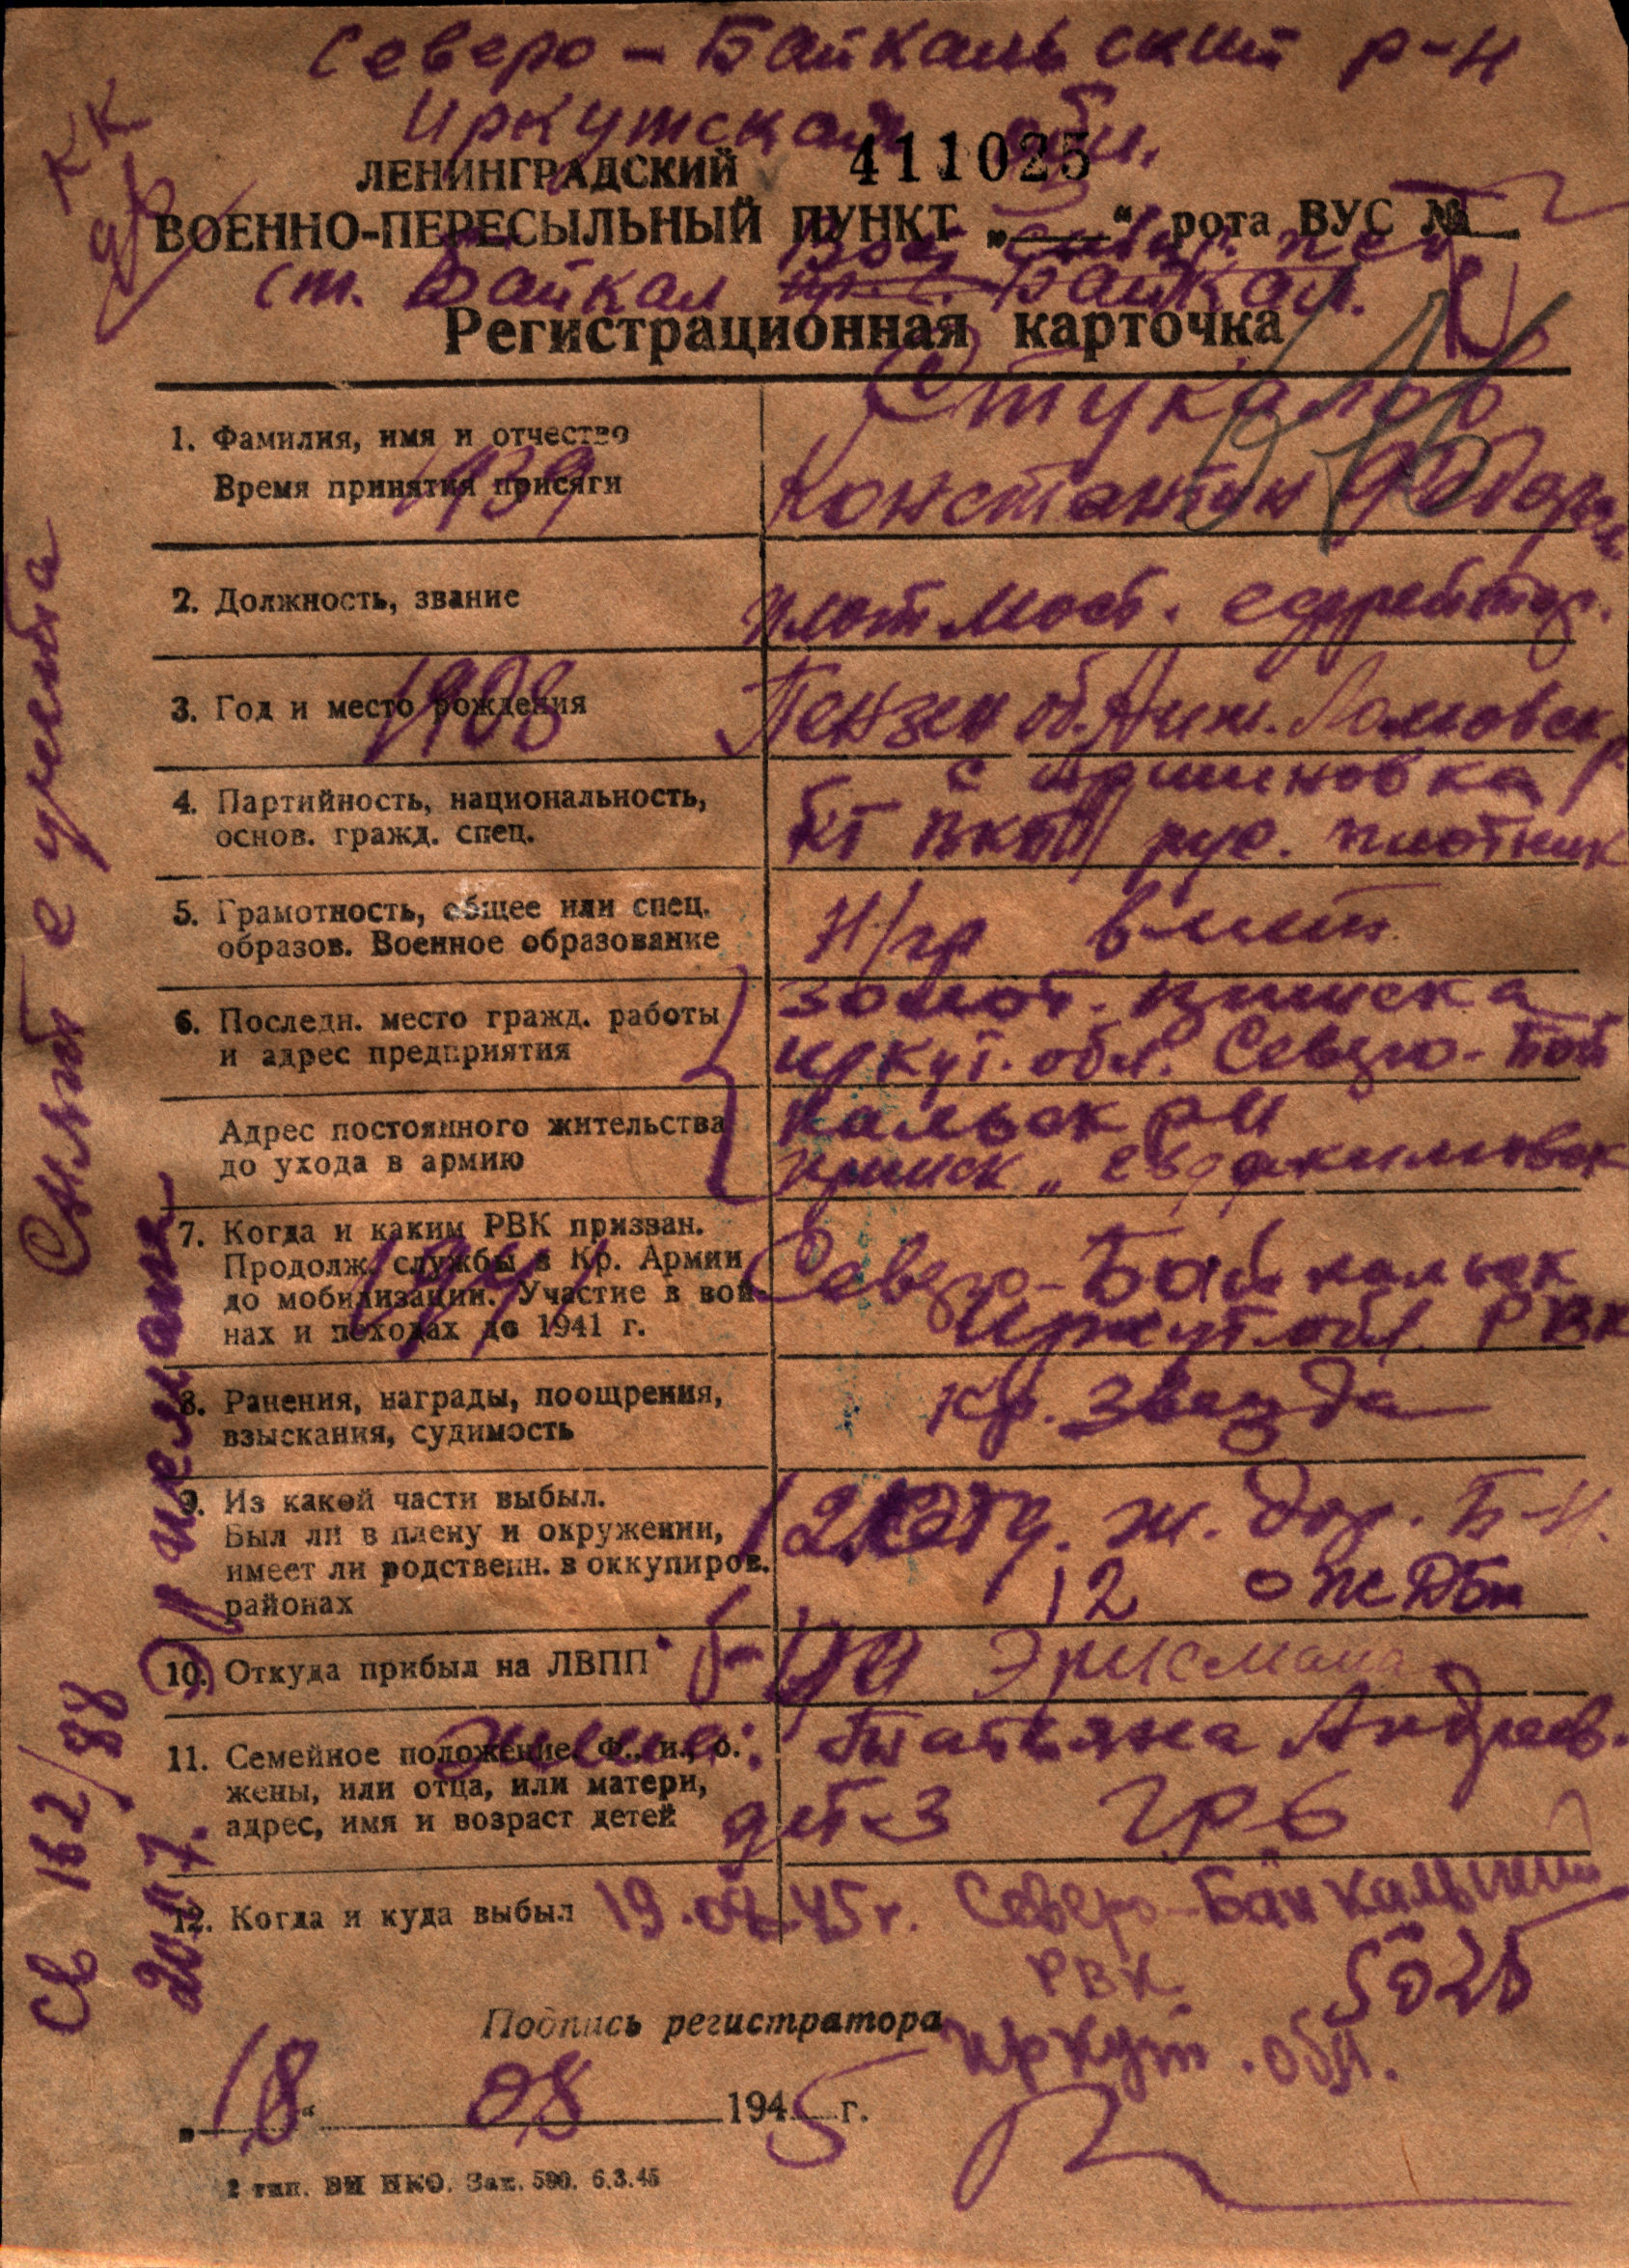 Северо-Байкальский р-н
Иркутская обл.
КК
ЛЕНИНГРАДСКИЙ 411025
ВОЕННО-ПЕРЕСЫЛЬНЫЙ ПУНКТ „ “ рота ВУС №
ст. Байкал Байкал.
Регистрационная карточка
Стукалов
1. Фамилия, имя и отчество
Время принятия присяги
1939
Константин
2. Должность, звание
плот. мост. ефрейтор.
3. Год и место рождения
1908
Пензен об. Ниж. Ломовск р
с
4. Партийность, национальность,
основ. гражд. спец.
рус. плотник
5. Грамотность, общее или спец.
образов. Военное образование
Н/гр
6. Последн. место гражд. работы
и адрес предприятия
золот. прииска
Иркут. обл. Северо-Бай
Адрес постоянного жительства
до ухода в армию
кальск р-н
прииск „
7. Когда и каким РВК призван.
Продолж. службы в Кр. Армии
до мобилизации. Участие в вой-
нах и походах до 1941 г.
1941
Северо-Байкальск
Иркут обл. РВК
8. Ранения, награды, поощрения,
взыскания, судимость
Кр. Звезда
9. Из какой части выбыл.
Был ли в плену и окружении,
имеет ли родственн. в оккупиров.
районах
12 отд. ж. дор. Б-н.
12 ожДБт
10. Откуда прибыл на ЛВПП
б-ца Эрисмана
11. Семейное положение. Ф., и., о.
жены, или отца, или матери,
адрес, имя и возраст детей
жена: Татьяна Андреев.
дет-3 гр 6
12. Когда и куда выбыл
19.08.45 г. Северо-Байкальский
РВК
5025
Иркут. обл.
Подпись регистратора
„18“ 08 1945 г.
2 тип. ВИ НКО. Зак. 590. 6.3.45
Снят с учета
Св 162/88